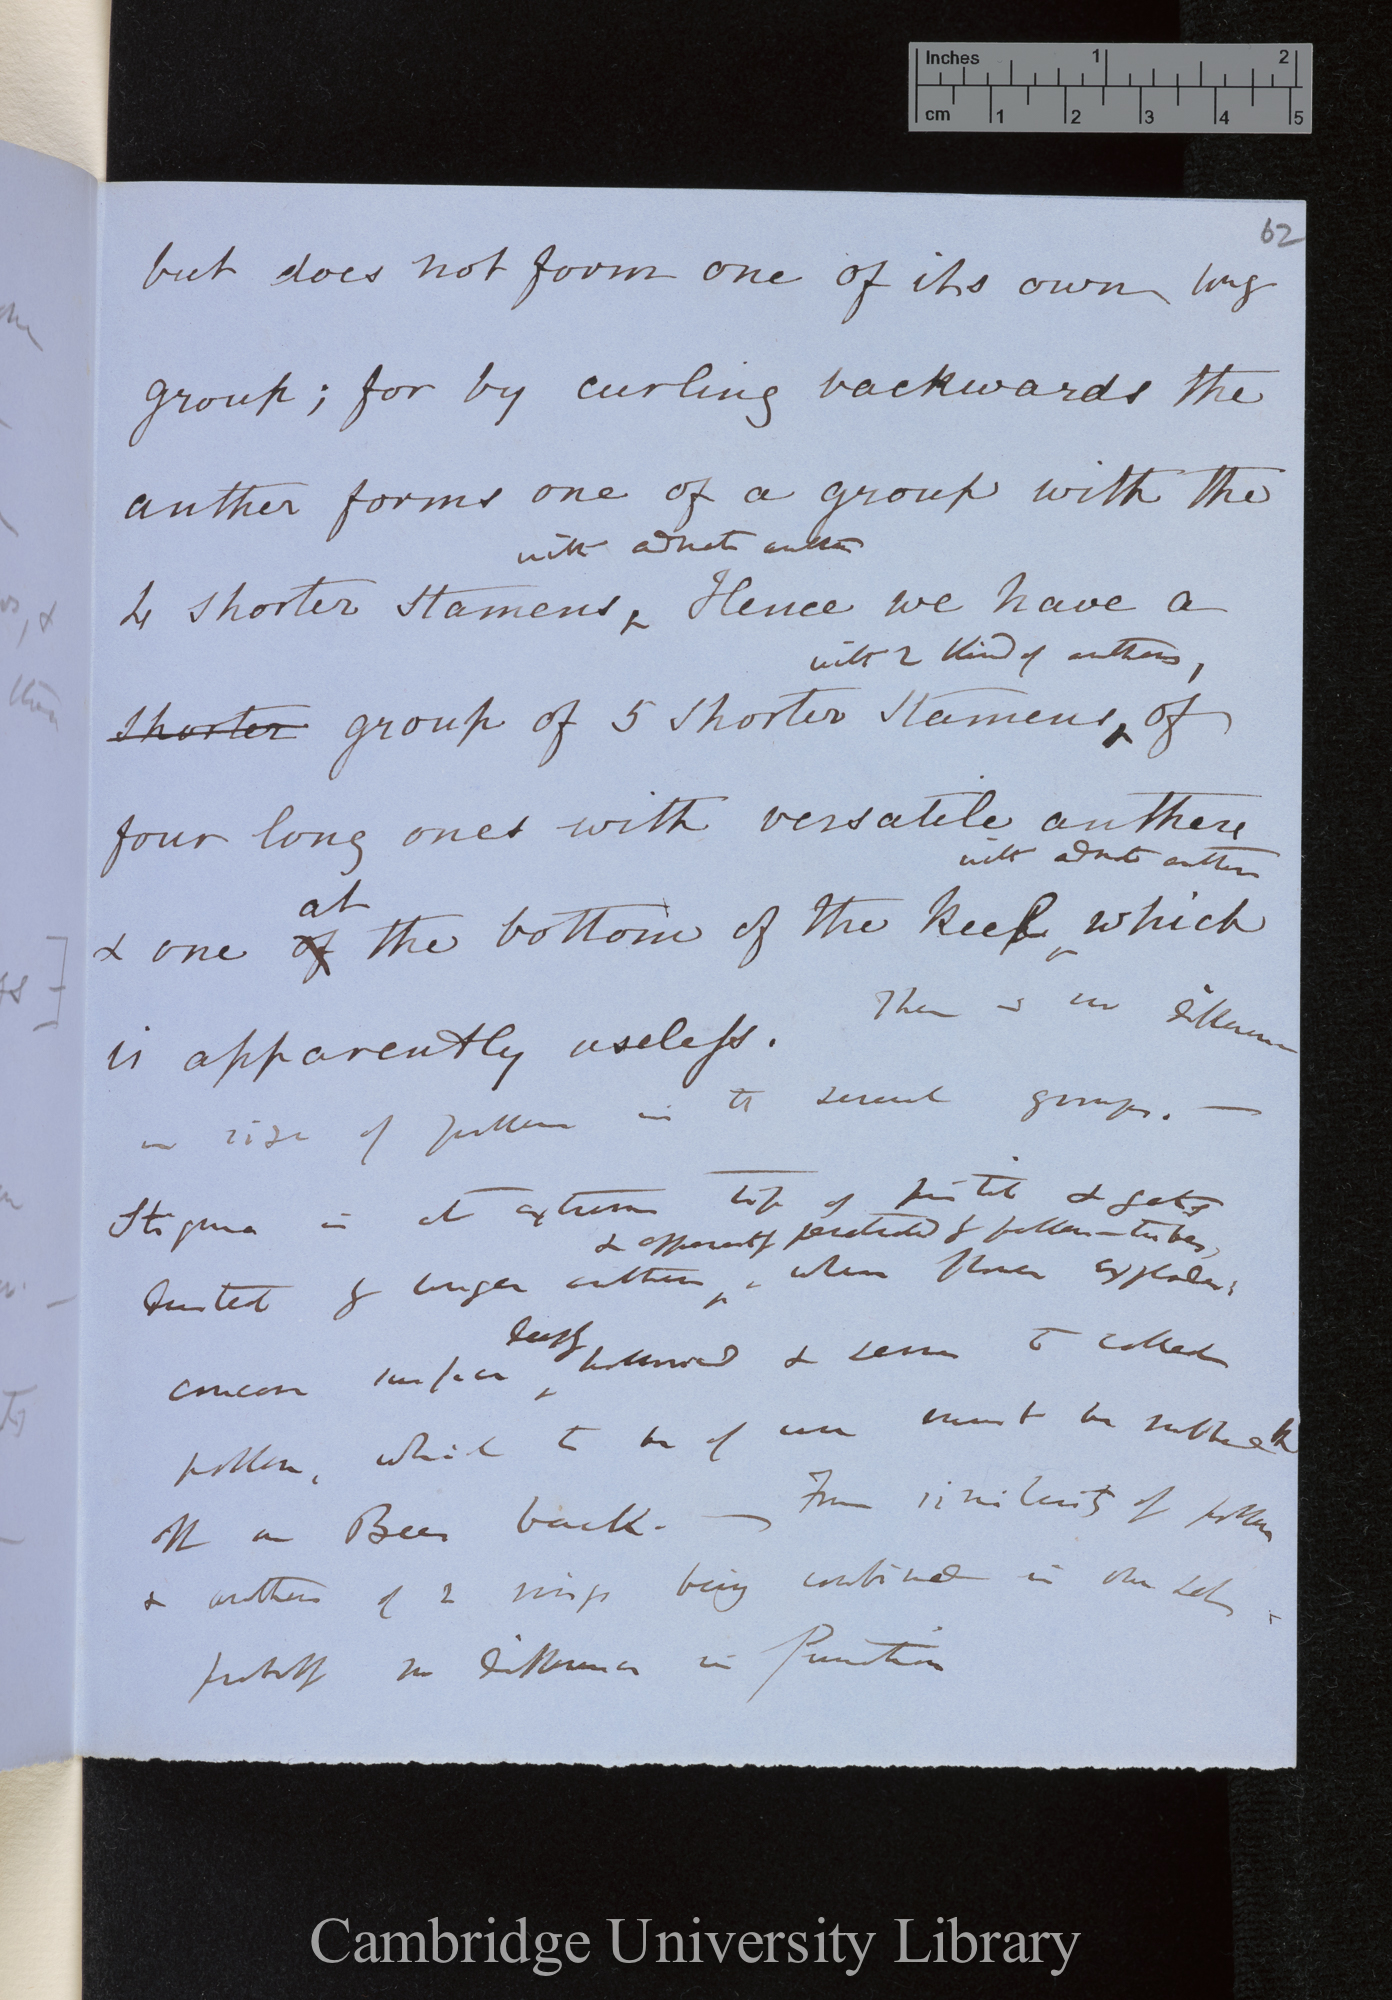 Inches 1 2
cm 1 2 3 4 5
62
but does not form one of its own long
group; for by curling backwards the
anther forms one of a group with the
with adnate anther
4 shorter stamens, Hence we have a
with 2 kind of anthers,
shorter group of 5 shorter stamens, of
four long ones with versatile anthers
with adnate anther
at
& one of the bottom of the keel, which
is apparently useless. There is no difference
in size of pollen in the several groups. —
Stigma is at extreme top of pistil & gets
& apparently penetrated by pollen-tubes,
dusted by longer anthers, when flower explodes;
deeply
concave surface hollowed & seems to collect
pollen, which to be of use must be rubbed
off on Bees back. — From similarity of pollen
& anthers of 2 rings being combined in one set,
probably no difference in Function
Cambridge University Library